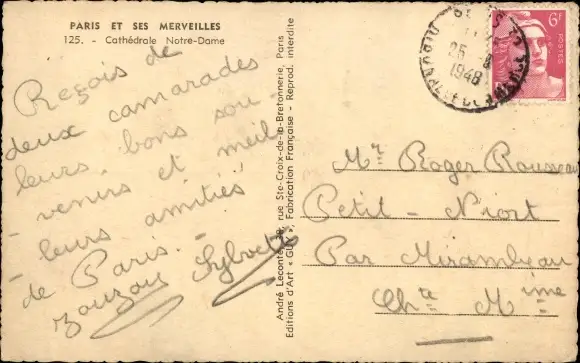 PARIS ET SES MERVEILLES
125. - Cathédrale Notre-Dame
Reçois de
deux camarades
leurs bons sou
- venirs et meil
- leurs amitiés
de Paris. -
Zouzou Sylvette
André Leconte, rue Ste-Croix-de-la-Bretonnerie, Paris
Editions d'Art « GUY », Fabrication Française - Reprod. interdite
25
1948
6F
POSTES
Mr Roger Rousseau
Petit - Niort
Par Mirambeau
Chte Mime